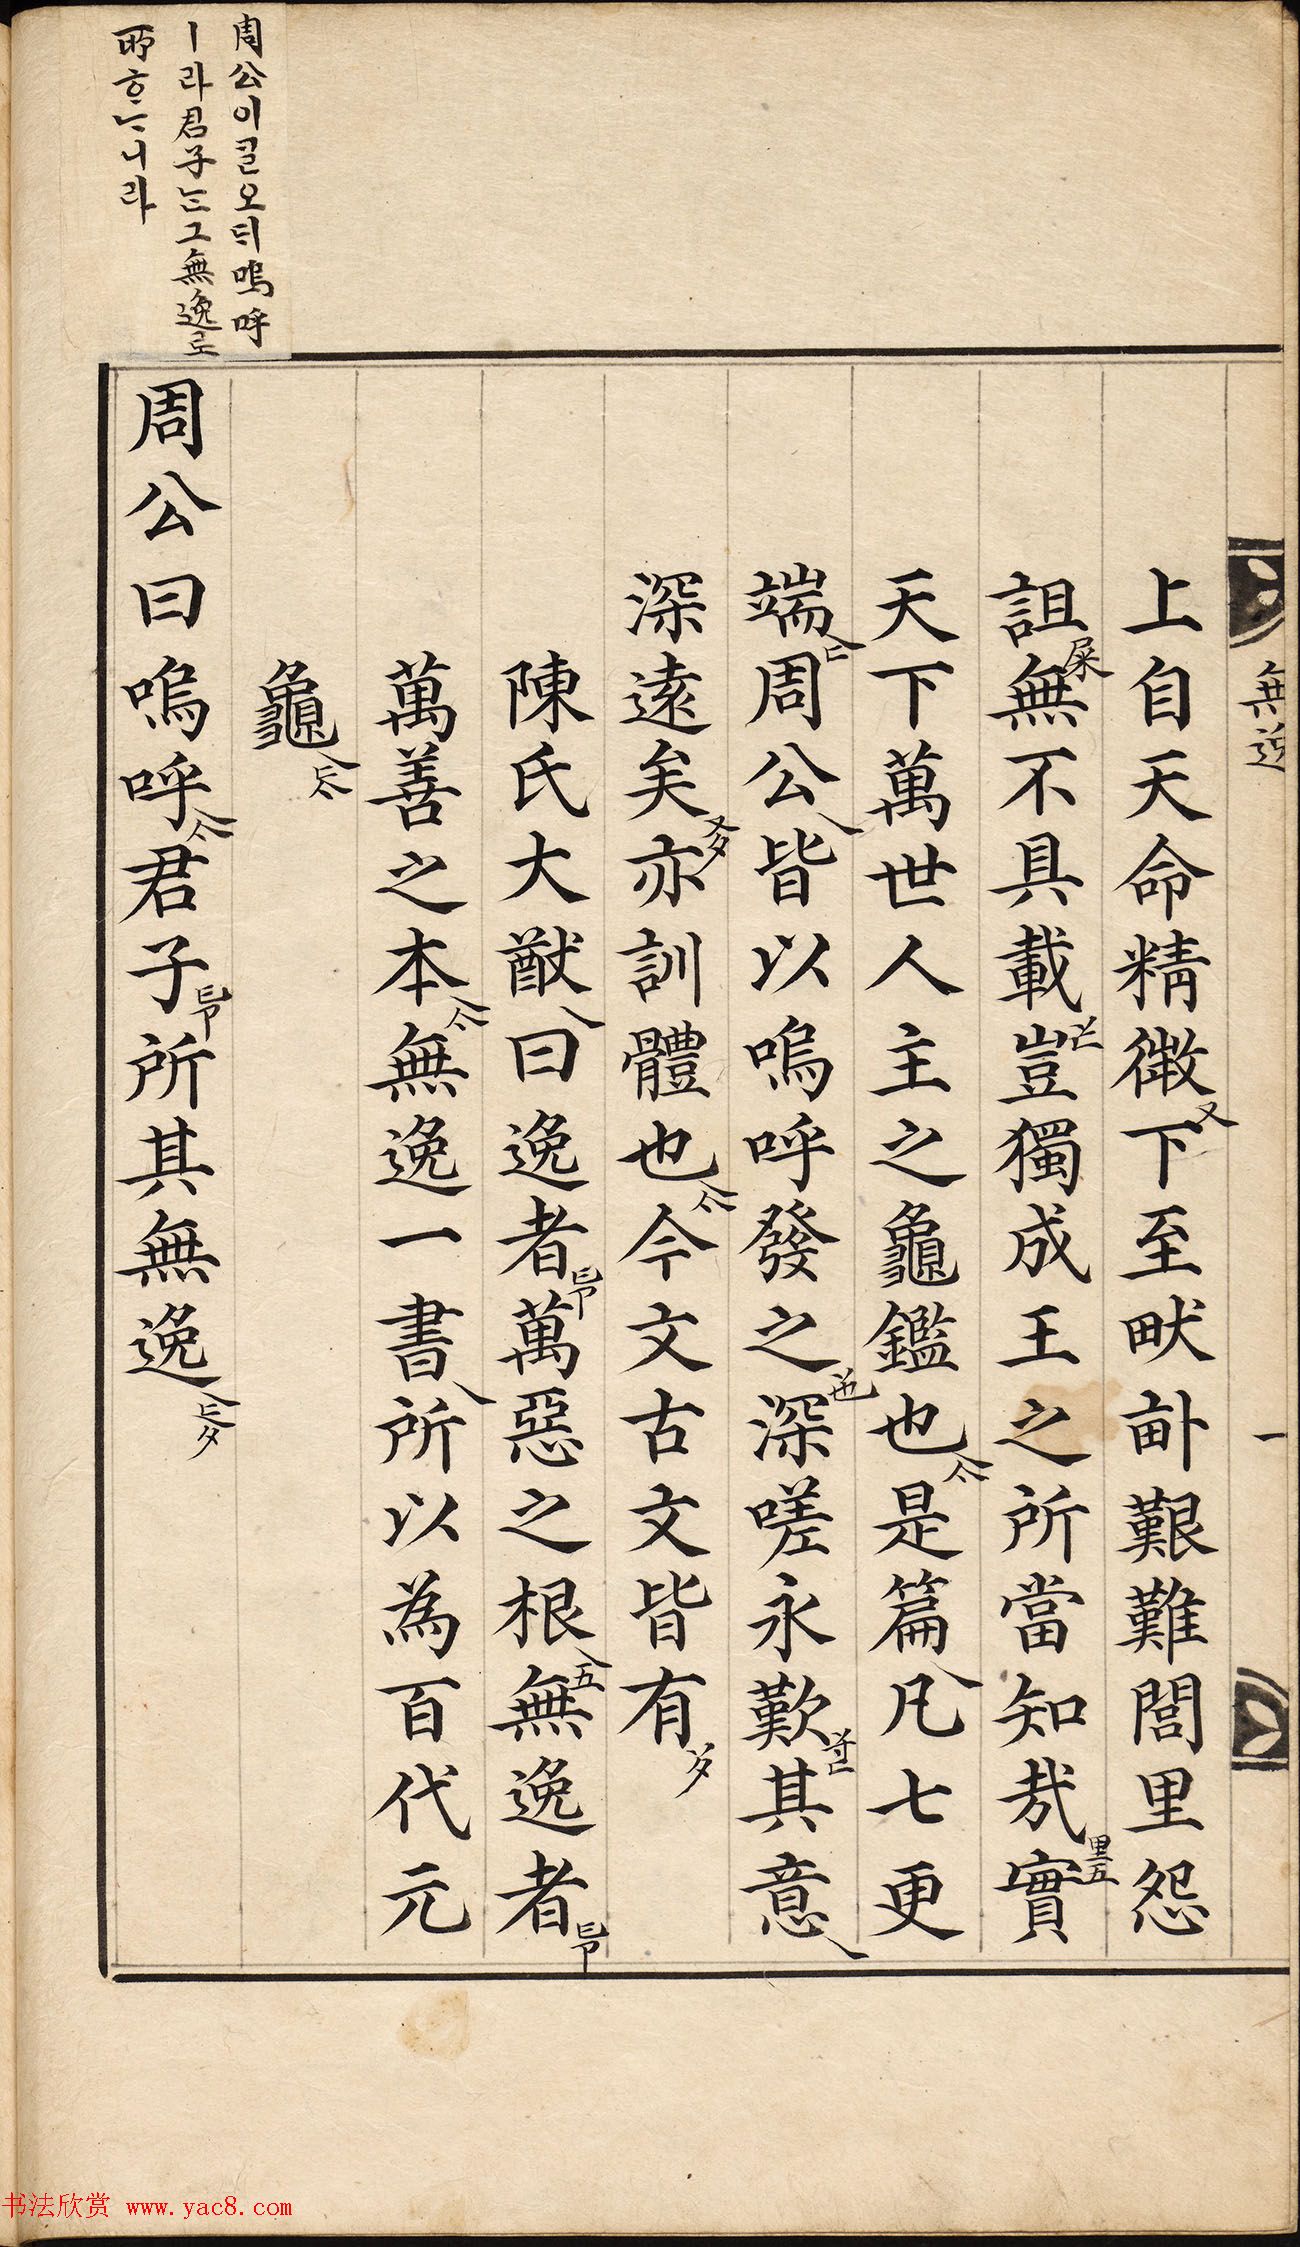 無逸
一
上自天命精微下至畎畝艱難閭里怨
詛無不具載豈獨成王之所當知哉實
天下萬世人主之龜鑑也是篇凡七更
端周公皆以嗚呼發之深嗟永歎其意
深遠矣亦訓體也今文古文皆有
陳氏大猷曰逸者萬惡之根無逸者
萬善之本無逸一書所以為百代元
龜
周公曰嗚呼君子所其無逸
周公이ᄀᆞᆯ오ᄃᆡ嗚呼
ㅣ라君子ᄂᆞᆫ그無逸로
所ᄒᆞᄂᆞ니라
书法欣赏 www.yac8.com